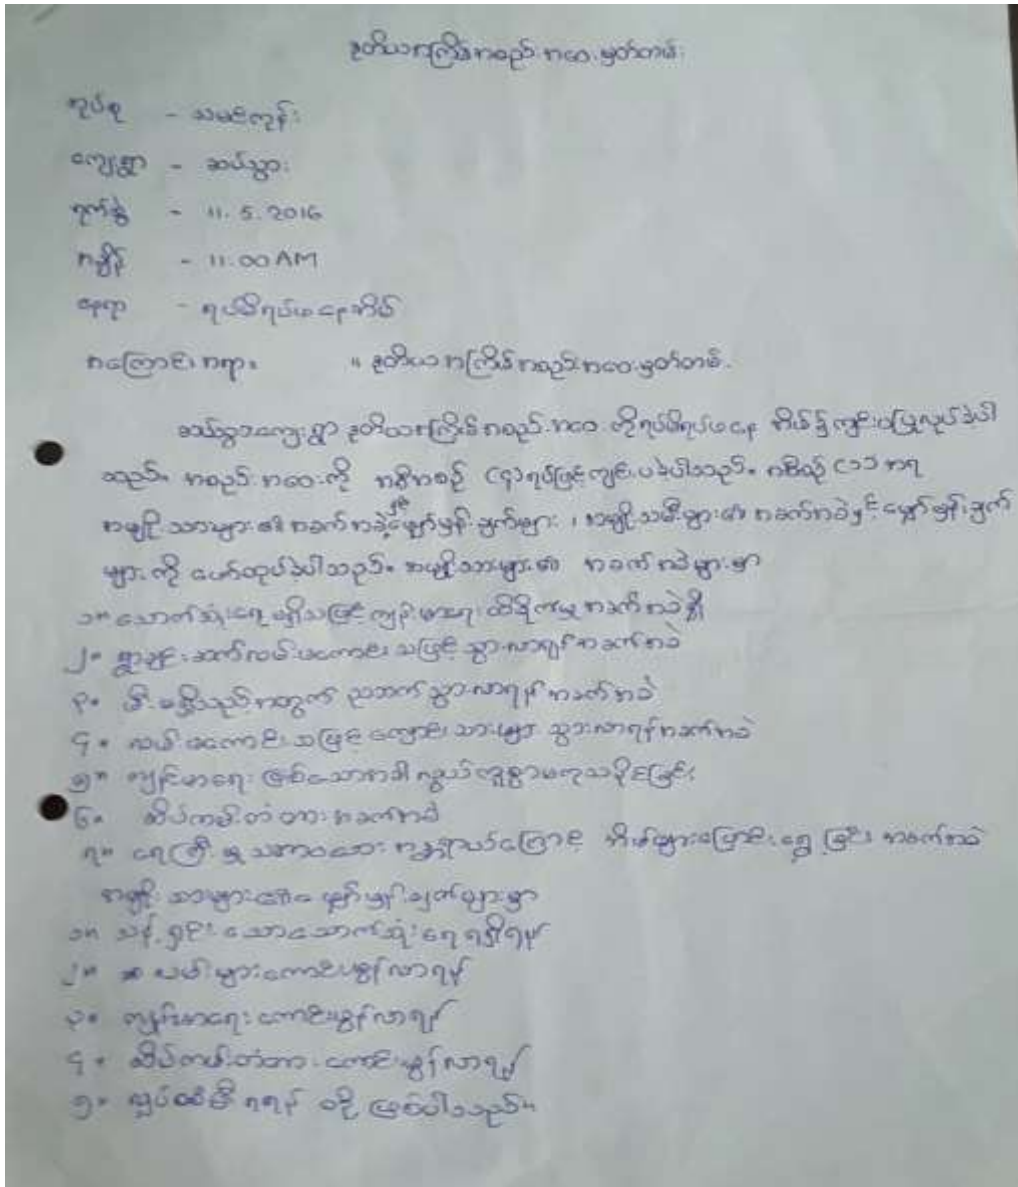 ဒုတိယအကြိမ်အစည်းအဝေးမှတ်တမ်း
အုပ်စု - သမင်ကုန်း
ကျေးရွာ - ဆပ်သွား
ရက်စွဲ - 11. 5. 2016
အချိန် - 11.00 AM
နေရာ - ရပ်မိရပ်ဖနေအိမ်
အကြောင်းအရာ။ ။ ဒုတိယအကြိမ်အစည်းအဝေးမှတ်တမ်း
ဆပ်သွားကျေးရွာ ဒုတိယအကြိမ်အစည်းအဝေး ကိုရပ်မိရပ်ဖနေ အိမ်၌ကျင်းပပြုလုပ်ခဲ့ပါ
သည်။ အစည်းအဝေးကို အစီအစဉ် (၄)ရပ်ဖြင့်ကျင်းပခဲ့ပါသည်။ အစီစဉ် (၁) အရ
အမျိုးသားများ၏ အခက်အခဲနှင့်မျှော်မှန်းချက်များ ၊ အမျိုးသမီးများ၏ အခက်အခဲနှင့် မျှော်မှန်းချက်
များကို ဖော်ထုတ်ခဲ့ပါသည်။ အမျိုးသားများ၏ အခက်အခဲများမှာ
၁။ သောက်သုံးရေ မရှိသဖြင့်ကျန်းမာရေးထိခိုက်မှု အခက်အခဲရှိ
၂။ ရွာချင်းဆက်လမ်းမကောင်းသဖြင့် သွားလာရန်အခက်အခဲ
၃။ မီးမရှိသည့်အတွက် ညဘက်သွားလာရန်အခက်အခဲ
၄။ လမ်းမကောင်းသဖြင့် ကျောင်းသားများ သွားလာရန်အခက်အခဲ
၅။ ကျန်းမာရေးဖြစ်သောအခါ လွယ်ကူစွာမကုသနိုင်ခြင်း
၆။ ဆိပ်ကမ်းတံတားအခက်အခဲ
၇။ ရေကြီးမှု သဘာဝဘေးအန္တရာယ်ကြောင့် အိမ်များပြောင်းရွှေ့ခြင်း အခက်အခဲ
အမျိုးသားများ၏ မျှော်မှန်းချက်များမှာ
၁။ သန့်ရှင်းသောသောက်သုံးရေရရှိရန်
၂။ လမ်းများကောင်းမွန်လာရန်
၃။ ကျန်းမာရေးကောင်းမွန်လာရန်
၄။ ဆိပ်ကမ်းတံတားကောင်းမွန်လာရန်
၅။ လျှပ်စစ်မီးရရန် တို့ဖြစ်ပါသည်။